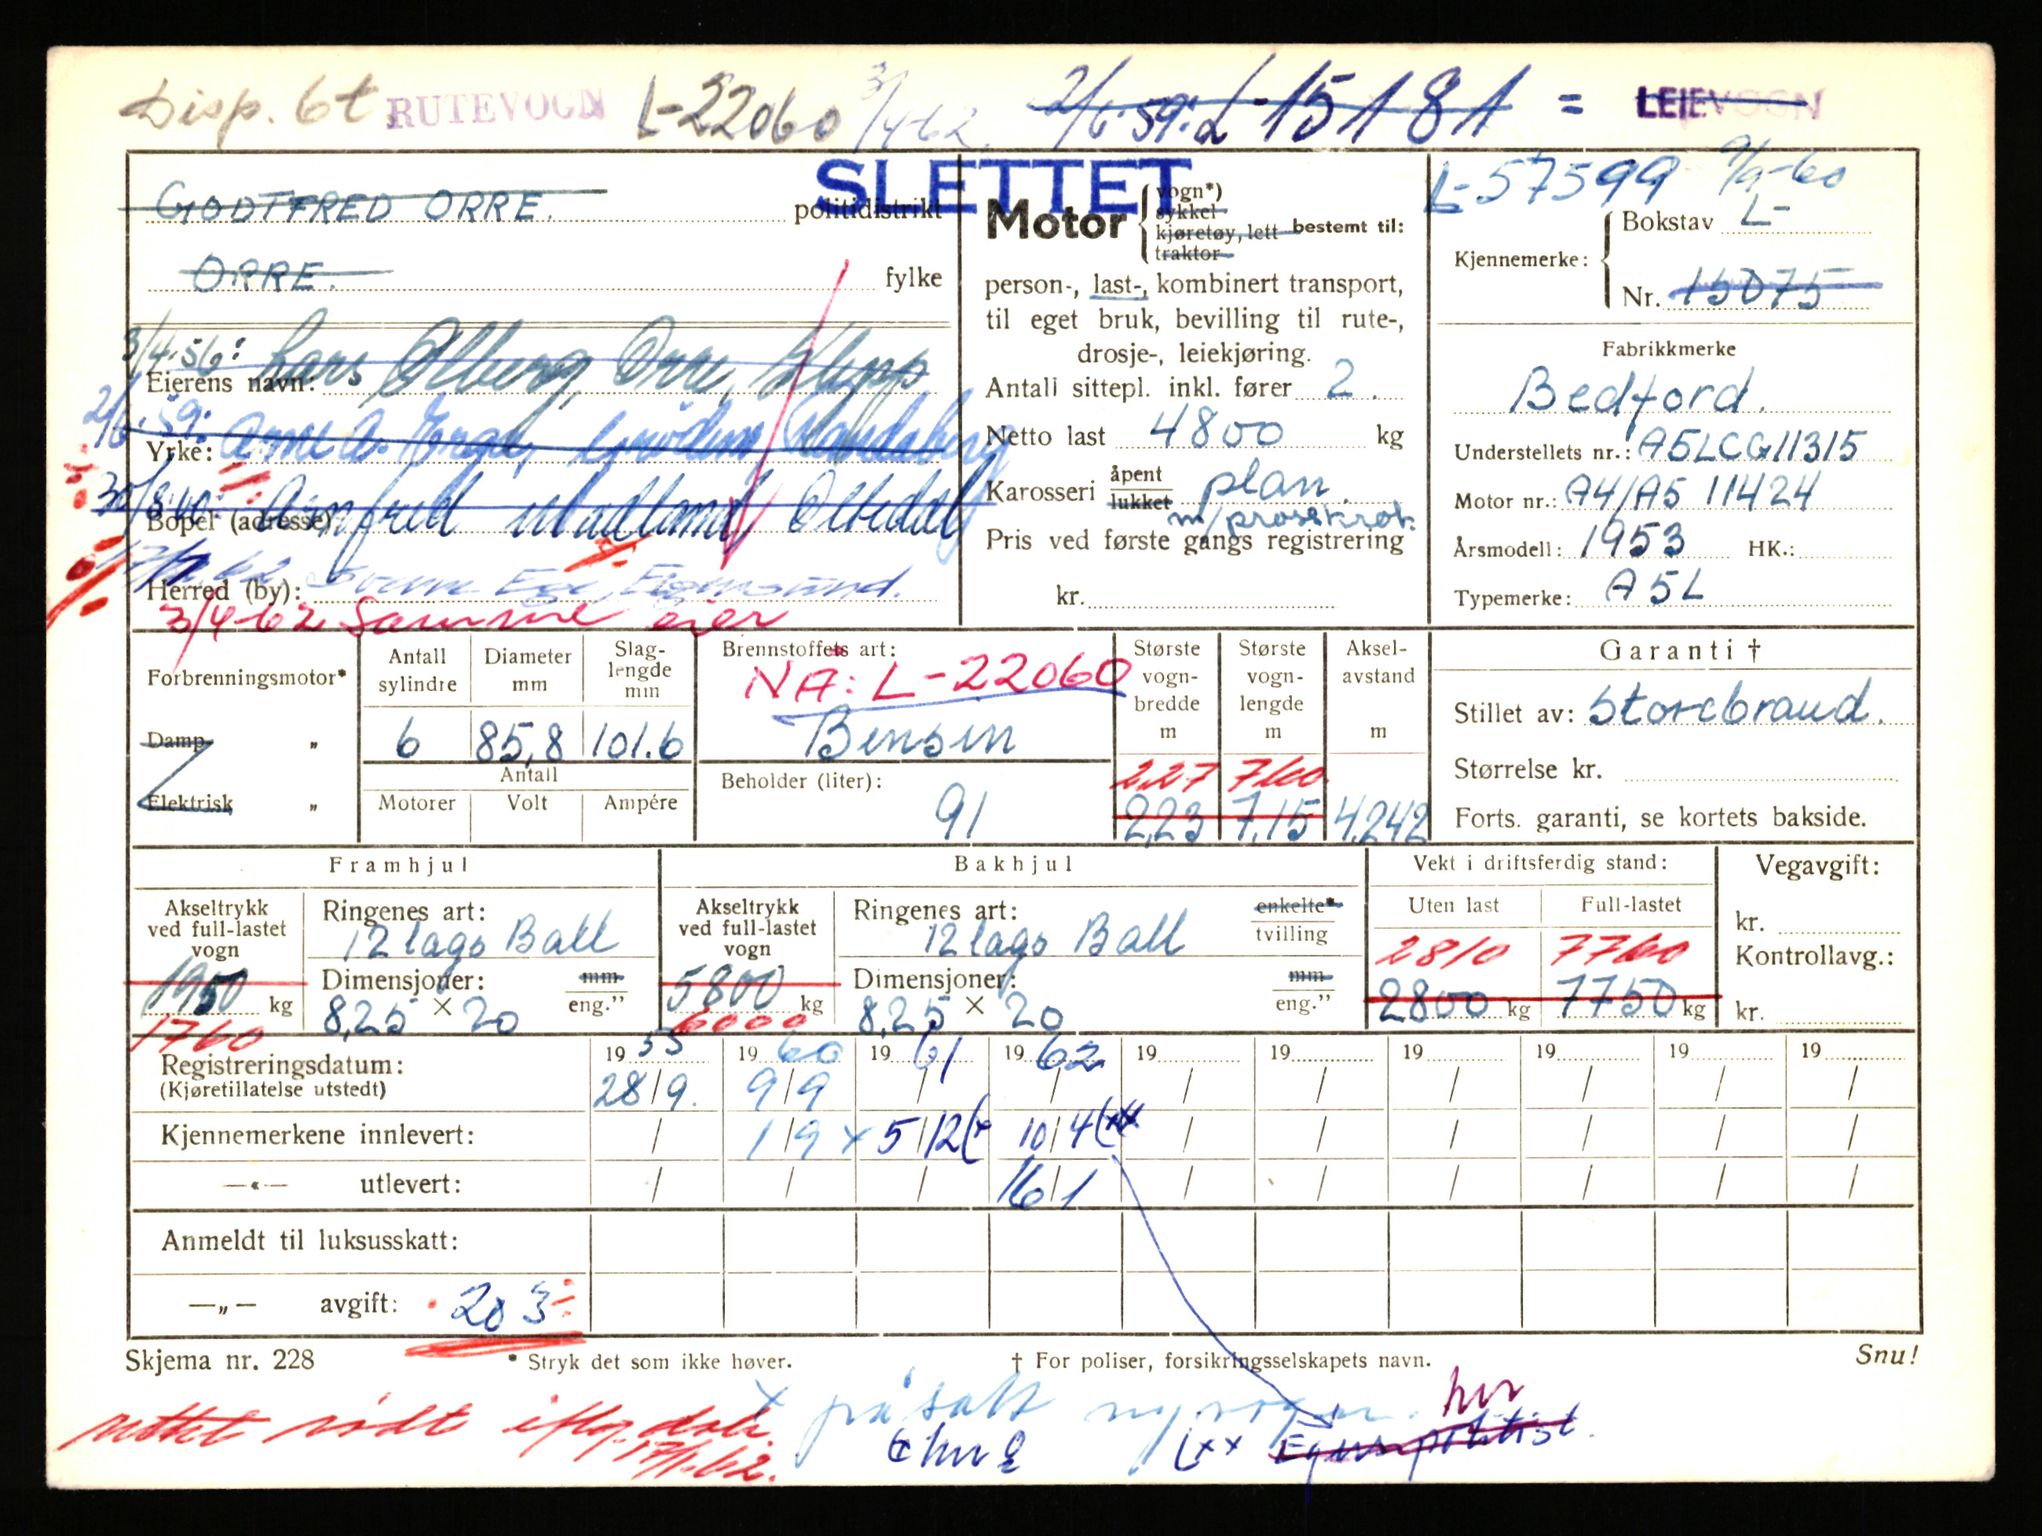 Disp. 6t RUTEVOGN L-22060 3/4-62 2/6-59: L-15181 = LEIEVOGN
SLETTET
GODTFRED ORRE. politidistrikt
ORRE. fylke
3/4-56: Lars Ølberg, Orre, Klepp
Eierens navn:
2/6-59: Arne A.
Yrke:
30/8-60: Arnfred Madland Oltedal
Bopel (adresse):
17/1-62 Svein Ege, Egersund.
Herred (by):
3/4-62 Samme eier
Motor vogn*) sykkel kjøretøy, lett traktor bestemt til:
person-, last-, kombinert transport,
til eget bruk, bevilling til rute-,
drosje-, leiekjøring.
Antall sittepl. inkl. fører 2.
Netto last 4800 kg
Karosseri åpent lukket plan.
m/
Pris ved første gangs registrering
kr.
L-57599 9/9-60
Kjennemerke: Bokstav L-
Nr. 15075
Fabrikkmerke
Bedford.
Understellets nr.: A5LCG11315
Motor nr.: A4/A5 11424
Årsmodell: 1953 HK.:
Typemerke: A5L
Forbrenningsmotor*
Damp "
Elektrisk "
Antall sylindre 6
Diameter mm 85,8
Slaglengde mm 101.6
Antall
Motorer Volt Ampére
Brennstoffets art:
NA: L-22060
Bensin
Beholder (liter):
91
Største vogn-bredde m 2,27 2,23
Største vogn-lengde m 7,60 7,15
Aksel-avstand m 4,242
Garanti †
Stillet av: Storebrand.
Størrelse kr.
Forts. garanti, se kortets bakside.
Framhjul
Akseltrykk ved full-lastet vogn
1950 kg
1760
Ringenes art:
12 lags Ball
Dimensjoner: mm eng."
8,25 × 20
Bakhjul
Akseltrykk ved full-lastet vogn
5800 kg
6000
Ringenes art: enkelte* tvilling
12 lags Ball
Dimensjoner: mm eng."
8,25 × 20
Vekt i driftsferdig stand:
Uten last Full-lastet
2810 7760
2800 kg 7750 kg
Vegavgift:
kr.
Kontrollavg.:
kr.
Registreringsdatum: 19 55 19 60 19 61 19 62 19 19 19 19 19 19
(Kjøretillatelse utstedt) 28/9. 9/9 / / / / / / / /
Kjennemerkene innlevert: / 1/9 x 5/12 (x 10/4 (xx / / / / / /
—«— utlevert: / / / 16/1 / / / / / /
Anmeldt til luksusskatt:
—„— avgift: 203
Skjema nr. 228 * Stryk det som ikke høver. † For poliser, forsikringsselskapets navn. Snu!
rettet rødt iflg. dok. 17/1-62.
x påsatt ny vogn. her
(xx